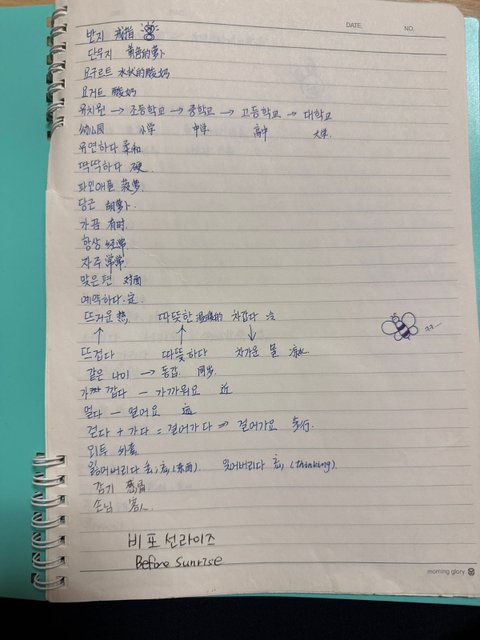 DATE. NO.
반지 戒指
단무지 黄色的萝卜
요구르트 水状的酸奶
요거트 酸奶
유치원 → 초등학교 → 중학교 → 고등학교 → 대학교
幼儿园 小学 中学 高中 大学
유연하다 柔和
딱딱하다 硬
파인애플 菠萝
당근 胡萝卜
가끔 有时
항상 经常
자주 常常
맞은편 对面
예약하다 定
뜨거운 热 따뜻한 차갑다 冷
뜨겁다 따뜻하다 차가운 물 凉水
같은 나이 → 동갑 同岁
가깝다 - 가까워요 近
멀다 - 멀어요 远
걷다 + 가다 = 걸어가다 ⇒ 걸어가요 步行
외투 外套
잃어버리다 丢, (东西). 잊어버리다 忘, (thinking).
감기 感冒
손님 客人
비포 선라이즈
Before Sunrise
morning glory